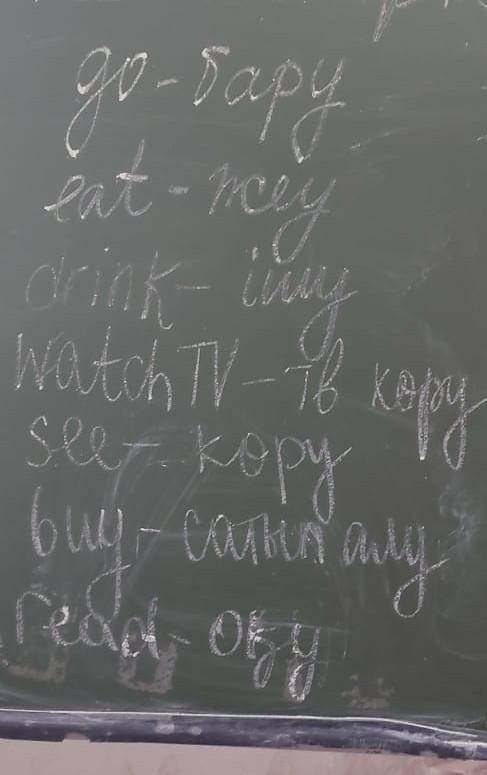 go - бару
eat - жеу
drink - ішу
watch TV - тв кору
see - кору
buy - сатып алу
read - оқу